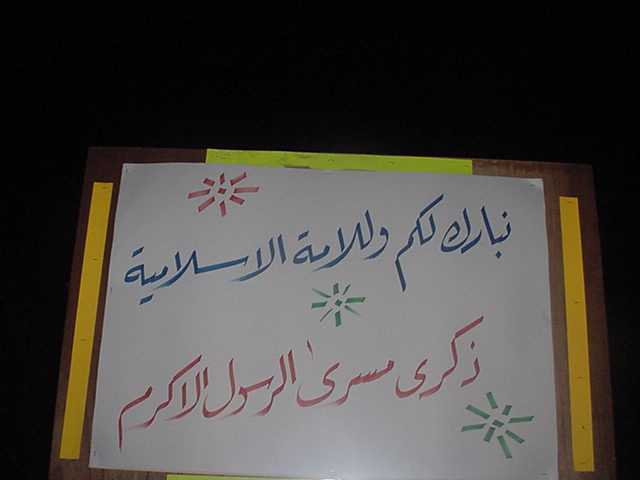 نبارك لكم وللامة الاسلامية
ذكرى مسرى الرسول الاكرم